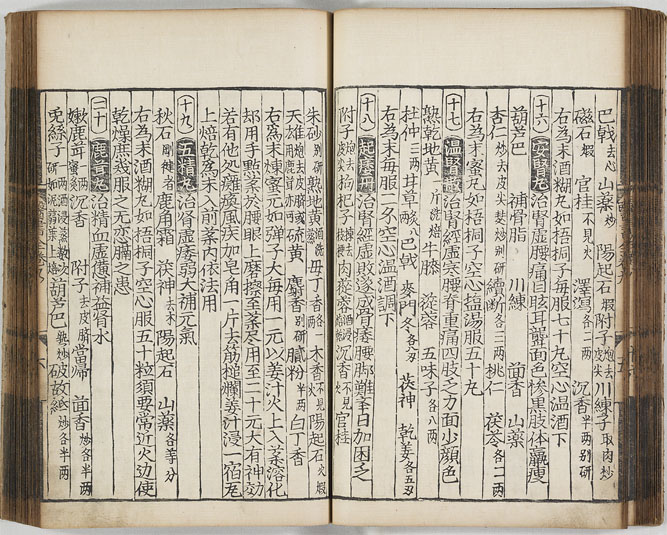 巴戟去心 山薬炒 陽起石煆 附子炮去皮尖 川練子取肉炒
磁石煆 官桂不見火 澤瀉各二両 沉香半両別研
右為末酒糊丸如梧桐子毎服七十丸空心温酒下
十六 安腎丸 治腎虚腰痛目眩耳聾面色㥾黒肢体羸痩
葫芦巴 補骨脂 川練 茴香 山薬
杏仁炒去皮尖 続断各三両 桃仁 茯苓各二両
右為末蜜丸如梧桐子空心塩湯服五十丸
十七 温腎散 治腎経虚寒腰脊重痛四肢乏力面少顔色
熟乾地黄一斤洗焙 牛膝 蓯蓉 五味子各八両
杜仲三両 甘草炙八両 巴戟 麥門冬各八両 茯神 乾姜各五両
右為末毎服二夕空心温酒調下
十八 治腎経虚敗遂感骨痿腰脚難挙日加困乏
附子炮去皮尖 枸杞子 肉蓯蓉酒浸 沉香不見火 官桂
朱砂別研 熟地黄酒洗 毋丁香 木香不見火 陽起石火煆
天雄炮去皮臍 硫黄 麝香別研 膩粉半両 白丁香
右為末煉蜜元如弾子大毎用一元以姜汁火上入薬溶化
却用手點薬於腰眼上磨擦至薬尽用至二十元大有神効
若有他処癱瘓風疾加皂角一片去筋槌爛姜汁浸一宿
上焙乾為末入前薬内依法用
十九 五精丸 治腎虚痿弱大補元氣
秋石 鹿角霜 茯神去木 陽起石 山薬各等分
右為末酒糊丸如梧桐子空心服五十粒須要常近火边使
乾燥庶幾服之无恋膈之患
二十 鹿茸丸 治精血虚憊補益腎水
嫩鹿茸一両蜜炙 沉香 附子去皮臍 當帰 茴香炒各半両
兎絲子 葫芦巴 破故紙炒各半両